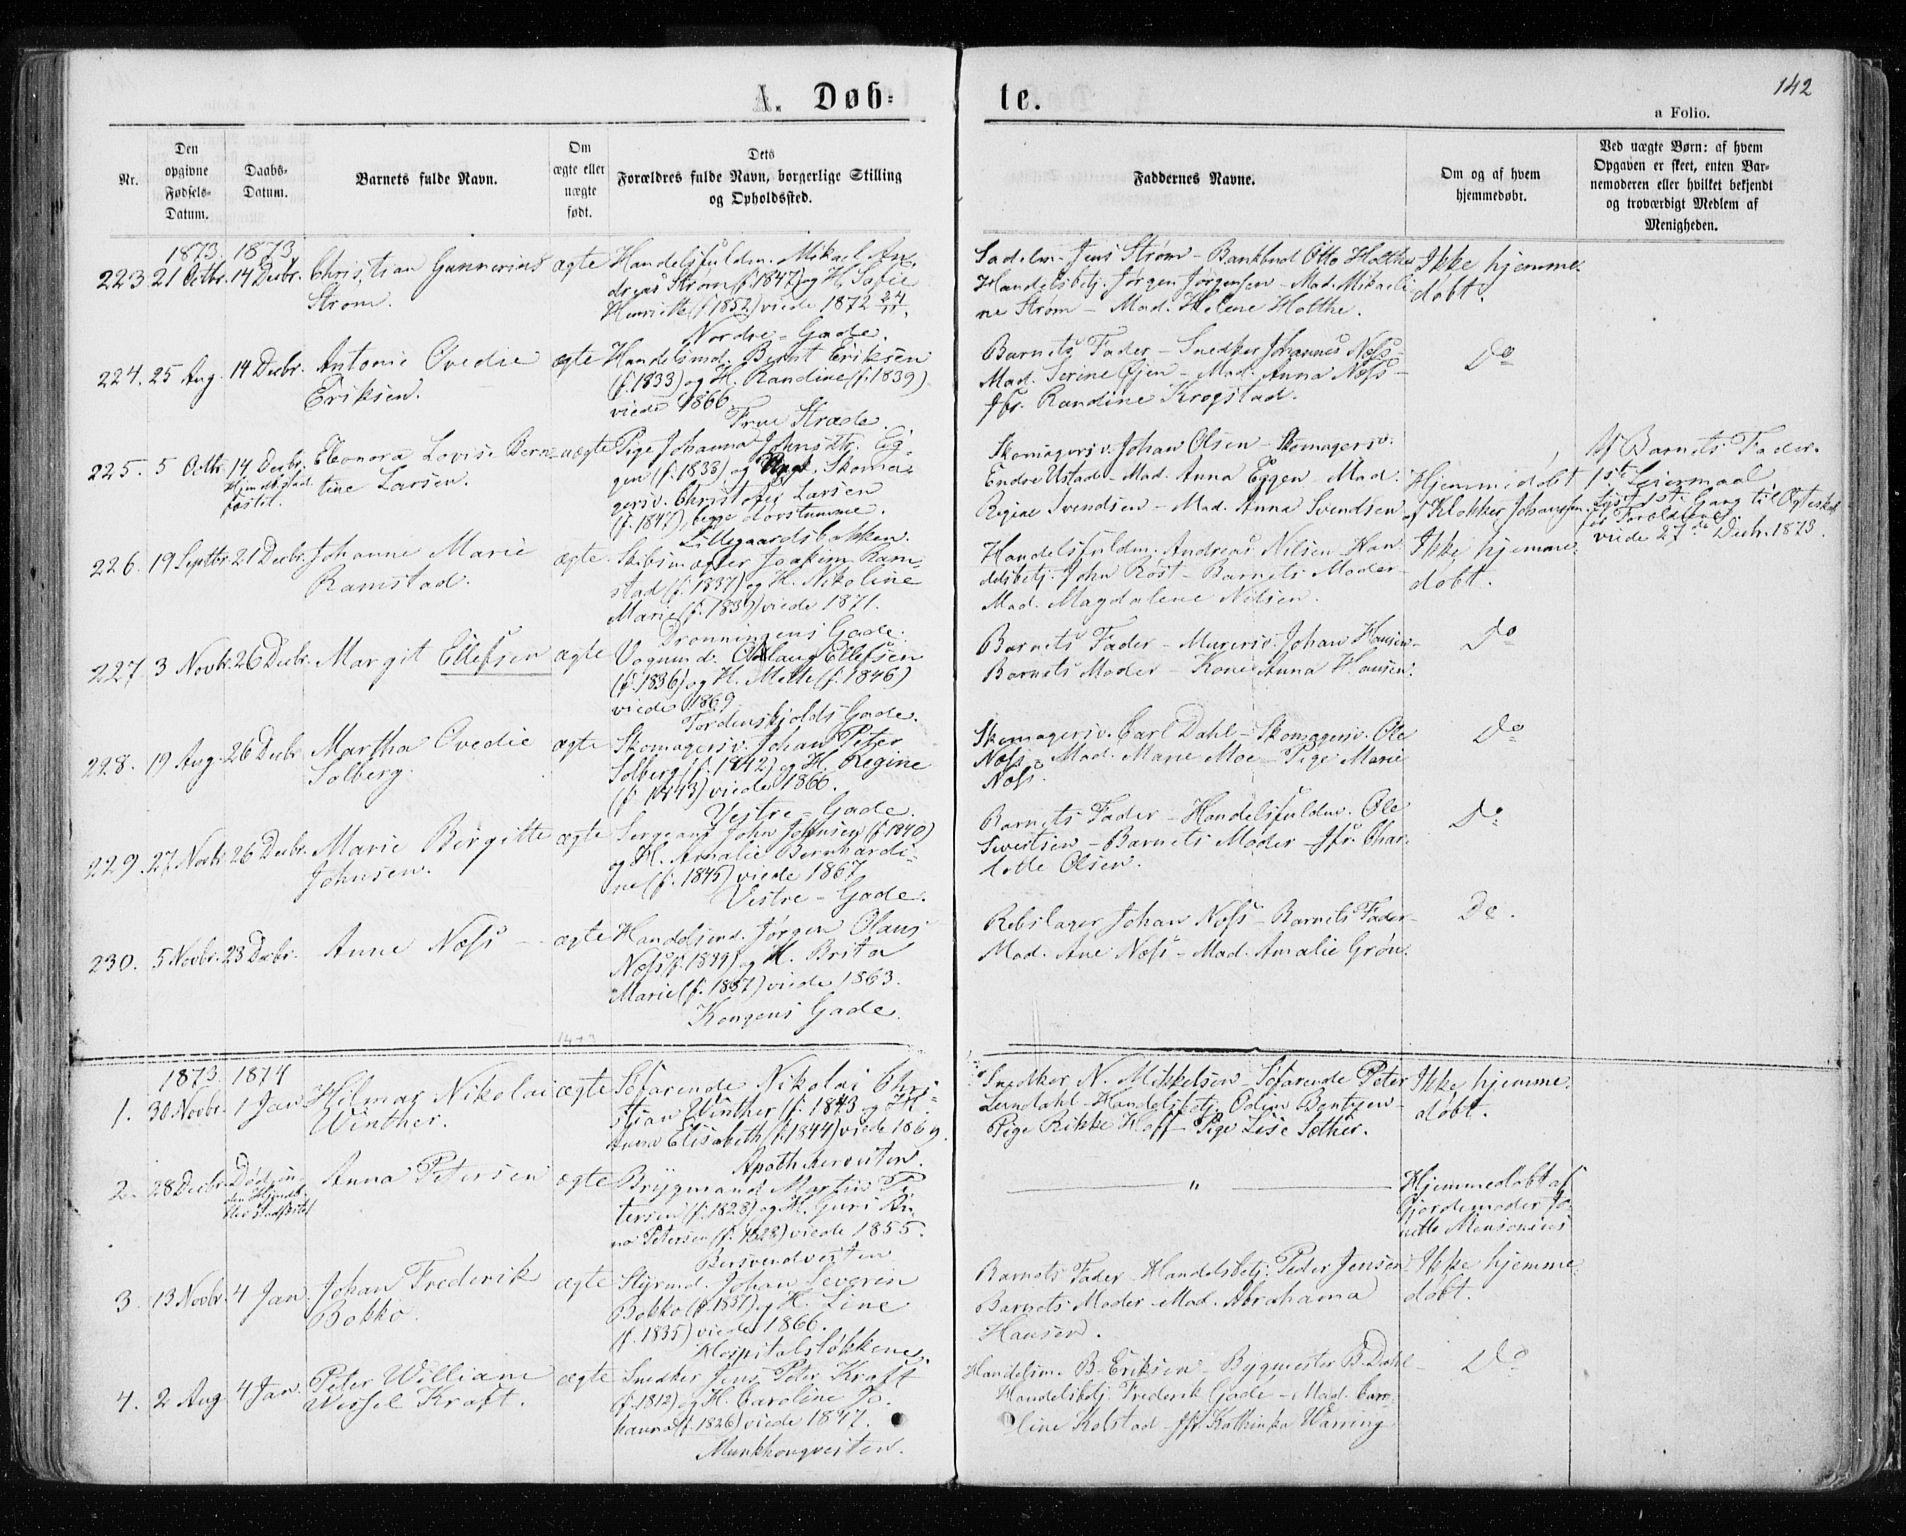 142
A. Døb-
te.
a Folio.
Nr.
Den opgivne Fødsels-Datum.
Daabs-Datum.
Barnets fulde Navn.
Om ægte eller uægte født.
Dets Forældres fulde Navn, borgerlige Stilling og Opholdssted.
Faddernes Navne.
Om og af hvem hjemmedøbt.
Ved uægte Børn: af hvem Opgaven er skeet, enten Barnemoderen eller hvilket bekjendt og troværdigt Medlem af Menigheden.
1873. 1873.
223. 21 Octbr. 14 Decbr. Christian Gunnerius ægte Handelsfuldm. Mikael An-
Strøm. dreas Strøm (f. 1847) og H. Sofie
Henriette (f. 1852) viede 1872 24/11.
Nordre-Gade.
Sadelm. Jens Strøm - Bankbud Otto Holthe
Handelsbetj. Jørgen Jørgensen - Mad. Mikaeli
ne Strøm - Mad. Helene Holthe.
Ikke hjemme-
døbt.
224. 25 Aug. 14 Decbr. Antonie Ovedie ægte Handelsmd. Bernt Eriksen
Eriksen. (f. 1833) og H. Randine (f. 1839)
viede 1866.
Frue Stræde.
Barnets Fader - Snedker Johannes Næss -
Mad. Serine Øjen - Mad. Anna Næss -
Jfr. Randine Krogstad.
Do
225. 5 Octbr. 14 Decbr. Eleonora Lovise Bern- uægte Pige Johanna Johnsdtr. Eg-
tine Larsen. gen (f. 1838) og Ungk. Skoma-
gersv. Christofer Larsen
(f. 1847), begge døvstumme.
Lillegaardsbakken.
Skomagersv. Johan Olsen - Skomagersv.
Endre Ustad - Mad. Anna Eggen - Mad.
Regine Svendsen - Mad. Anna Svendsen
Hjemmedøbt
af Klokker Johansen.
Af Barnets Fader.
1ste Leiermaal
viede 27de Decbr. 1873.
226. 19 Septbr. 21 Decbr. Johanne Marie ægte. Skibstømmer Joakim Ram-
Ramstad. stad (f. 1837) og H. Nikoline
Marie (f. 1839) viede 1871.
Dronningens Gade.
Handelsfuldm. Andreas Nilsen - Han
delsbetj. John Røst - Barnets Moder -
Mad. Magdalene Nilsen.
Ikke hjemme-
døbt.
227. 3 Novbr. 26 Decbr. Margit Ellefsen ægte Vognmd. Ellefsen
(f. 1836) og H. Mette (f. 1846)
viede 1869
Tordenskjolds Gade.
Barnets Fader - Murersv. Johan Hansen -
Barnets Moder - Kone Anna Hansen.
Do
228. 19 Aug. 26 Decbr. Martha Ovedie ægte Skomagersv. Johan Peter
Solberg. Solberg (f. 1842) og H. Regine
(f. 1843) viede 1866.
Vestre-Gade.
Skomagersv. Carl Dahl - Skomagersv. Ole
Næss - Mad. Marie Moe - Pige Marie
Næss.
Do
229. 27 Novbr. 26 Decbr. Marie Birgitte ægte Sergeant John Johnsen (f. 1840)
Johnsen. og H. Amalie Bernhardi-
ne (f. 1845) viede 1867
Vestre-Gade.
Barnets Fader - Handelsfuldm. Ole
Sivertsen - Barnets Moder - Jfr. Char-
lotte Olsen.
Do
230. 5 Novbr. 28 Decbr. Anne Næss - ægte Handelsmd. Jørgen Olaus
Næss (f. 1839) og H. Brita
Marie (f. 1837) viede 1863.
Kongens Gade.
Rebslager Johan Næss - Barnets Fader -
Mad. Ane Næss - Mad. Amalie Grøn.
Do.
1873. 1874
1. 30 Novbr. 1 Jan Hilmar Nikolai ægte Søfarende Nikolai Chri-
Winther. stian Winther (f. 1843) og H.
Anna Elisabeth (f. 1844) viede 1869.
Apothekerveiten.
Snedker N. Mikkelsen - Søfarende Peter
Lundahl - Handelsbetj. Odin Bentzen -
Pige Rikke Hoff - Pige Lise Sæther.
Ikke hjemme-
døbt.
2. 28 Decbr. Anna Petersen ægte Brygmand Martin Pe-
tersen (f. 1828) og H. Guri An-
na Petersen (f. 1828) viede 1855.
Bersvendveiten
"
Hjemmedøbt af
Gjordemoder Ja-
3. 13 Novbr. 4 Jan. Johan Frederik ægte Styrmd. Johan Severin
Bokko. Bokko (f. 1837) og H. Line
(f. 1835) viede 1866.
Hospitalsløkkene.
Barnets Fader - Handelsbetj. Peder Jensen
Barnets Moder - Mad. Abrahama
Hansen.
Ikke hjemme-
døbt.
4. 2 Aug. 4 Jan. Peter William ægte Snedker Jens Peter Kraft
Wessel Kraft. (f. 1812) og H. Caroline Jo-
hanna (f. 1826) viede 1847.
Munkhaugveiten.
Handelsm. B. Eriksen - Bygmester B. Dahl -
Handelsbetj. Frederik Gade - Mad. Caro-
line Kolstad - Jfr. Kathinka Warring
Do